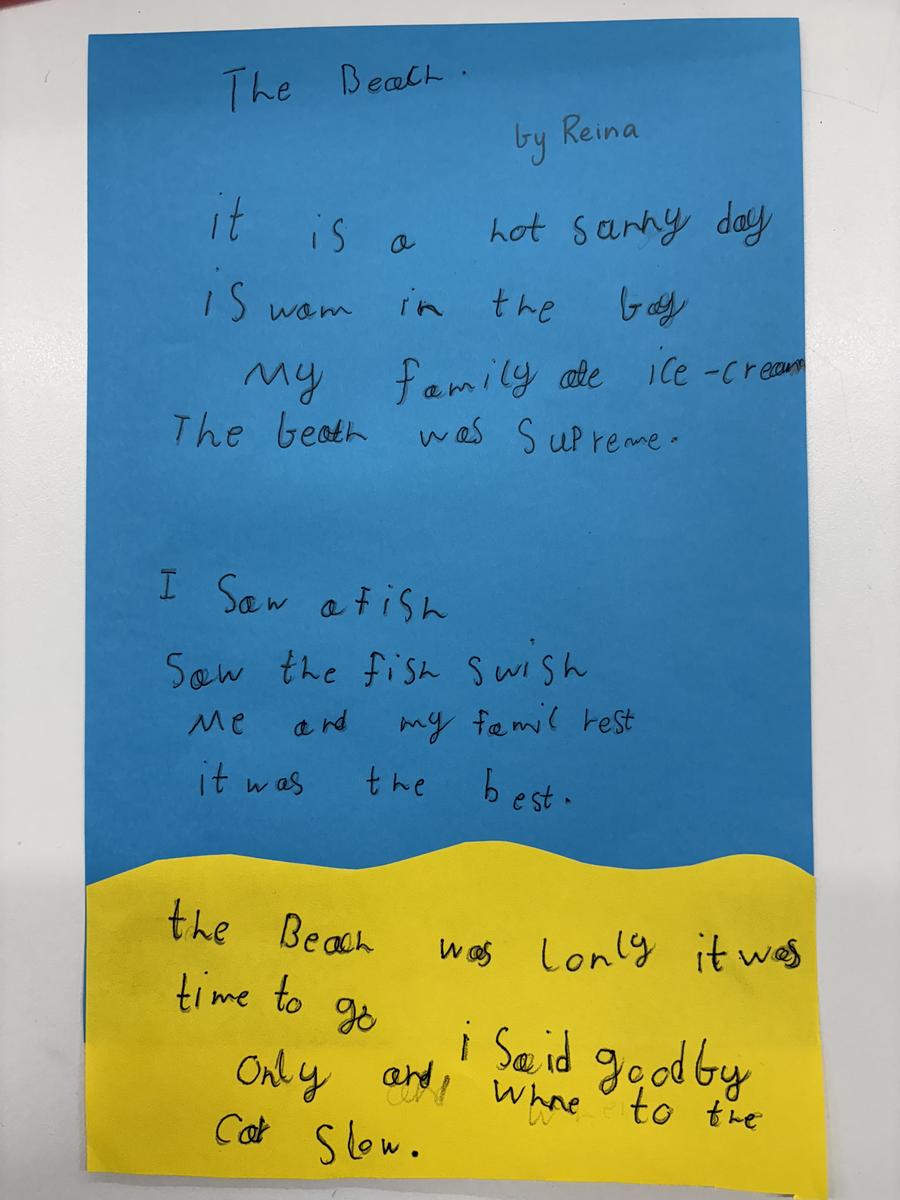 The Beach.
by Reina
it is a hot sunny day
is wam in the bay
My family ate ice-cream
The beach was Supreme.
I Saw a fish
Saw the fish swish
Me and my famil rest
it was the best.
the Beach was lonly it was
time to go
Only and, i Said goodby
Whne to the
Car Slow.